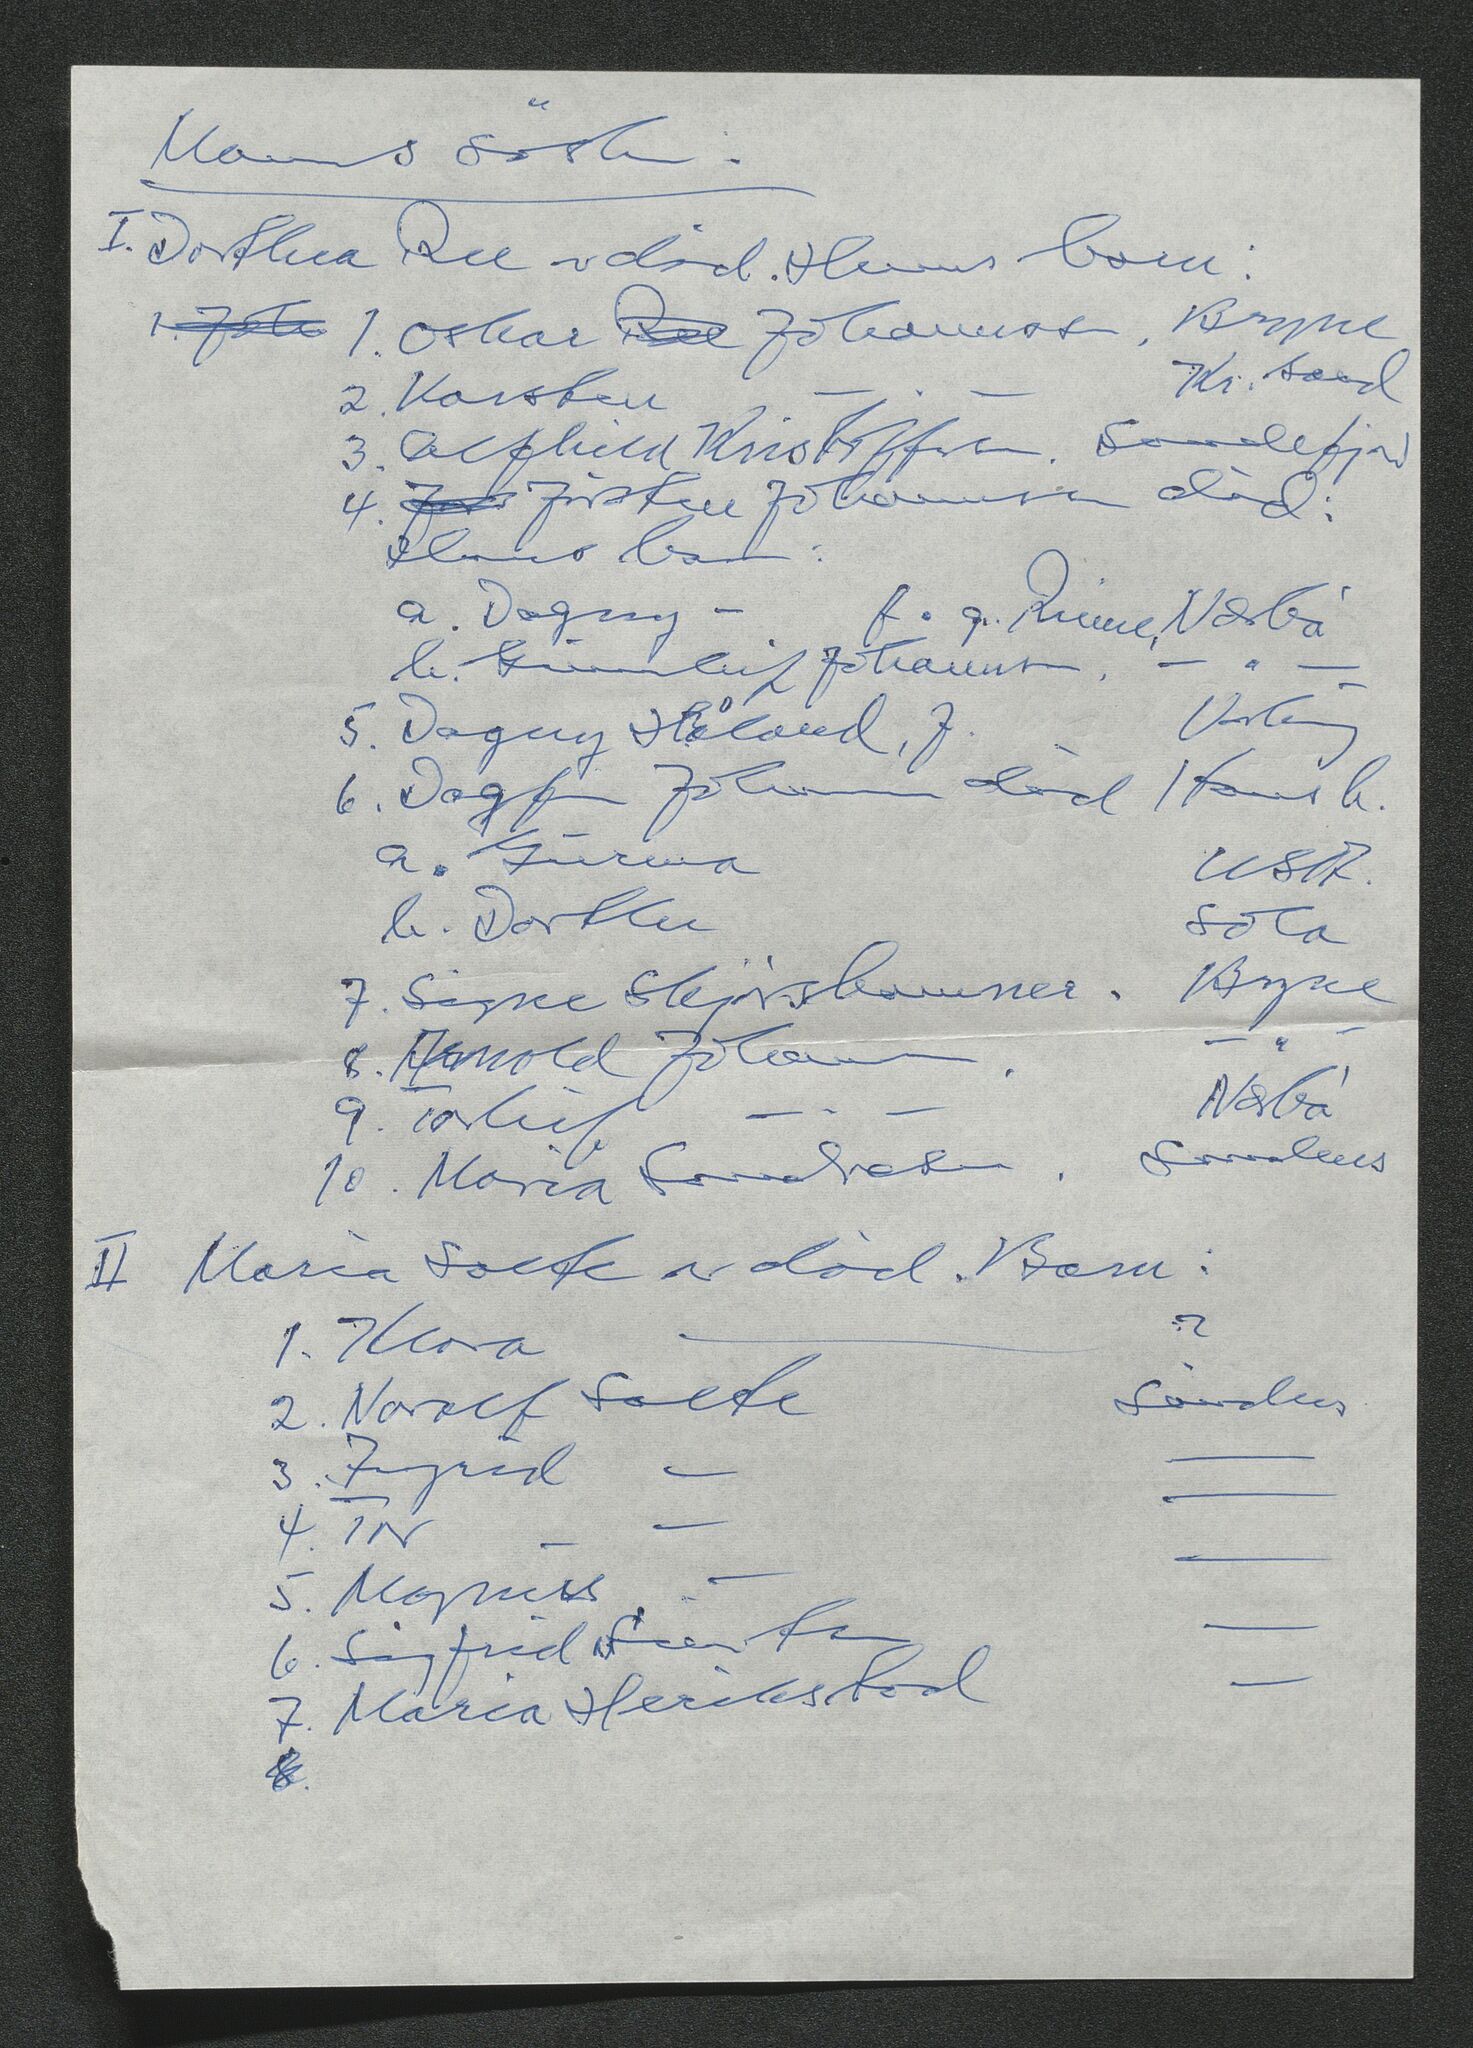 Mams söstre:
I. Dorthea Ree er död. Hennes barn:
1. Joh 1. Oskar Ree Johannessen, Bryne
2. Karsten — " — Kr. sand
3. Alfhild Kristoffersen. Sandefjord
4. Jos Josten Johannessen död:
Hans barn:
a. Dagny - f. g. Rime, Nærbö
b. Gunnleif Johannessen, — " —
5. Dagny Håland, J. Varhaug
6. Dagfin Johannessen död / Hans b.
a. Gurma USA.
b. Dorthe Sola
7. Signe Skjørshammer. Bryne
8. Arnold Johannessen. — " —
9. Torleif — " — Nærbö
10. Maria Sandvesen. Sandnes
II Maria Salte er död. Barn:
1. Klara — ?
2. Noralf Salte Sandnes
3. Ingrid — —
4. Tor — —
5. Magnus — —
6. Sigfrid —
7. Maria Herikstad —
8.